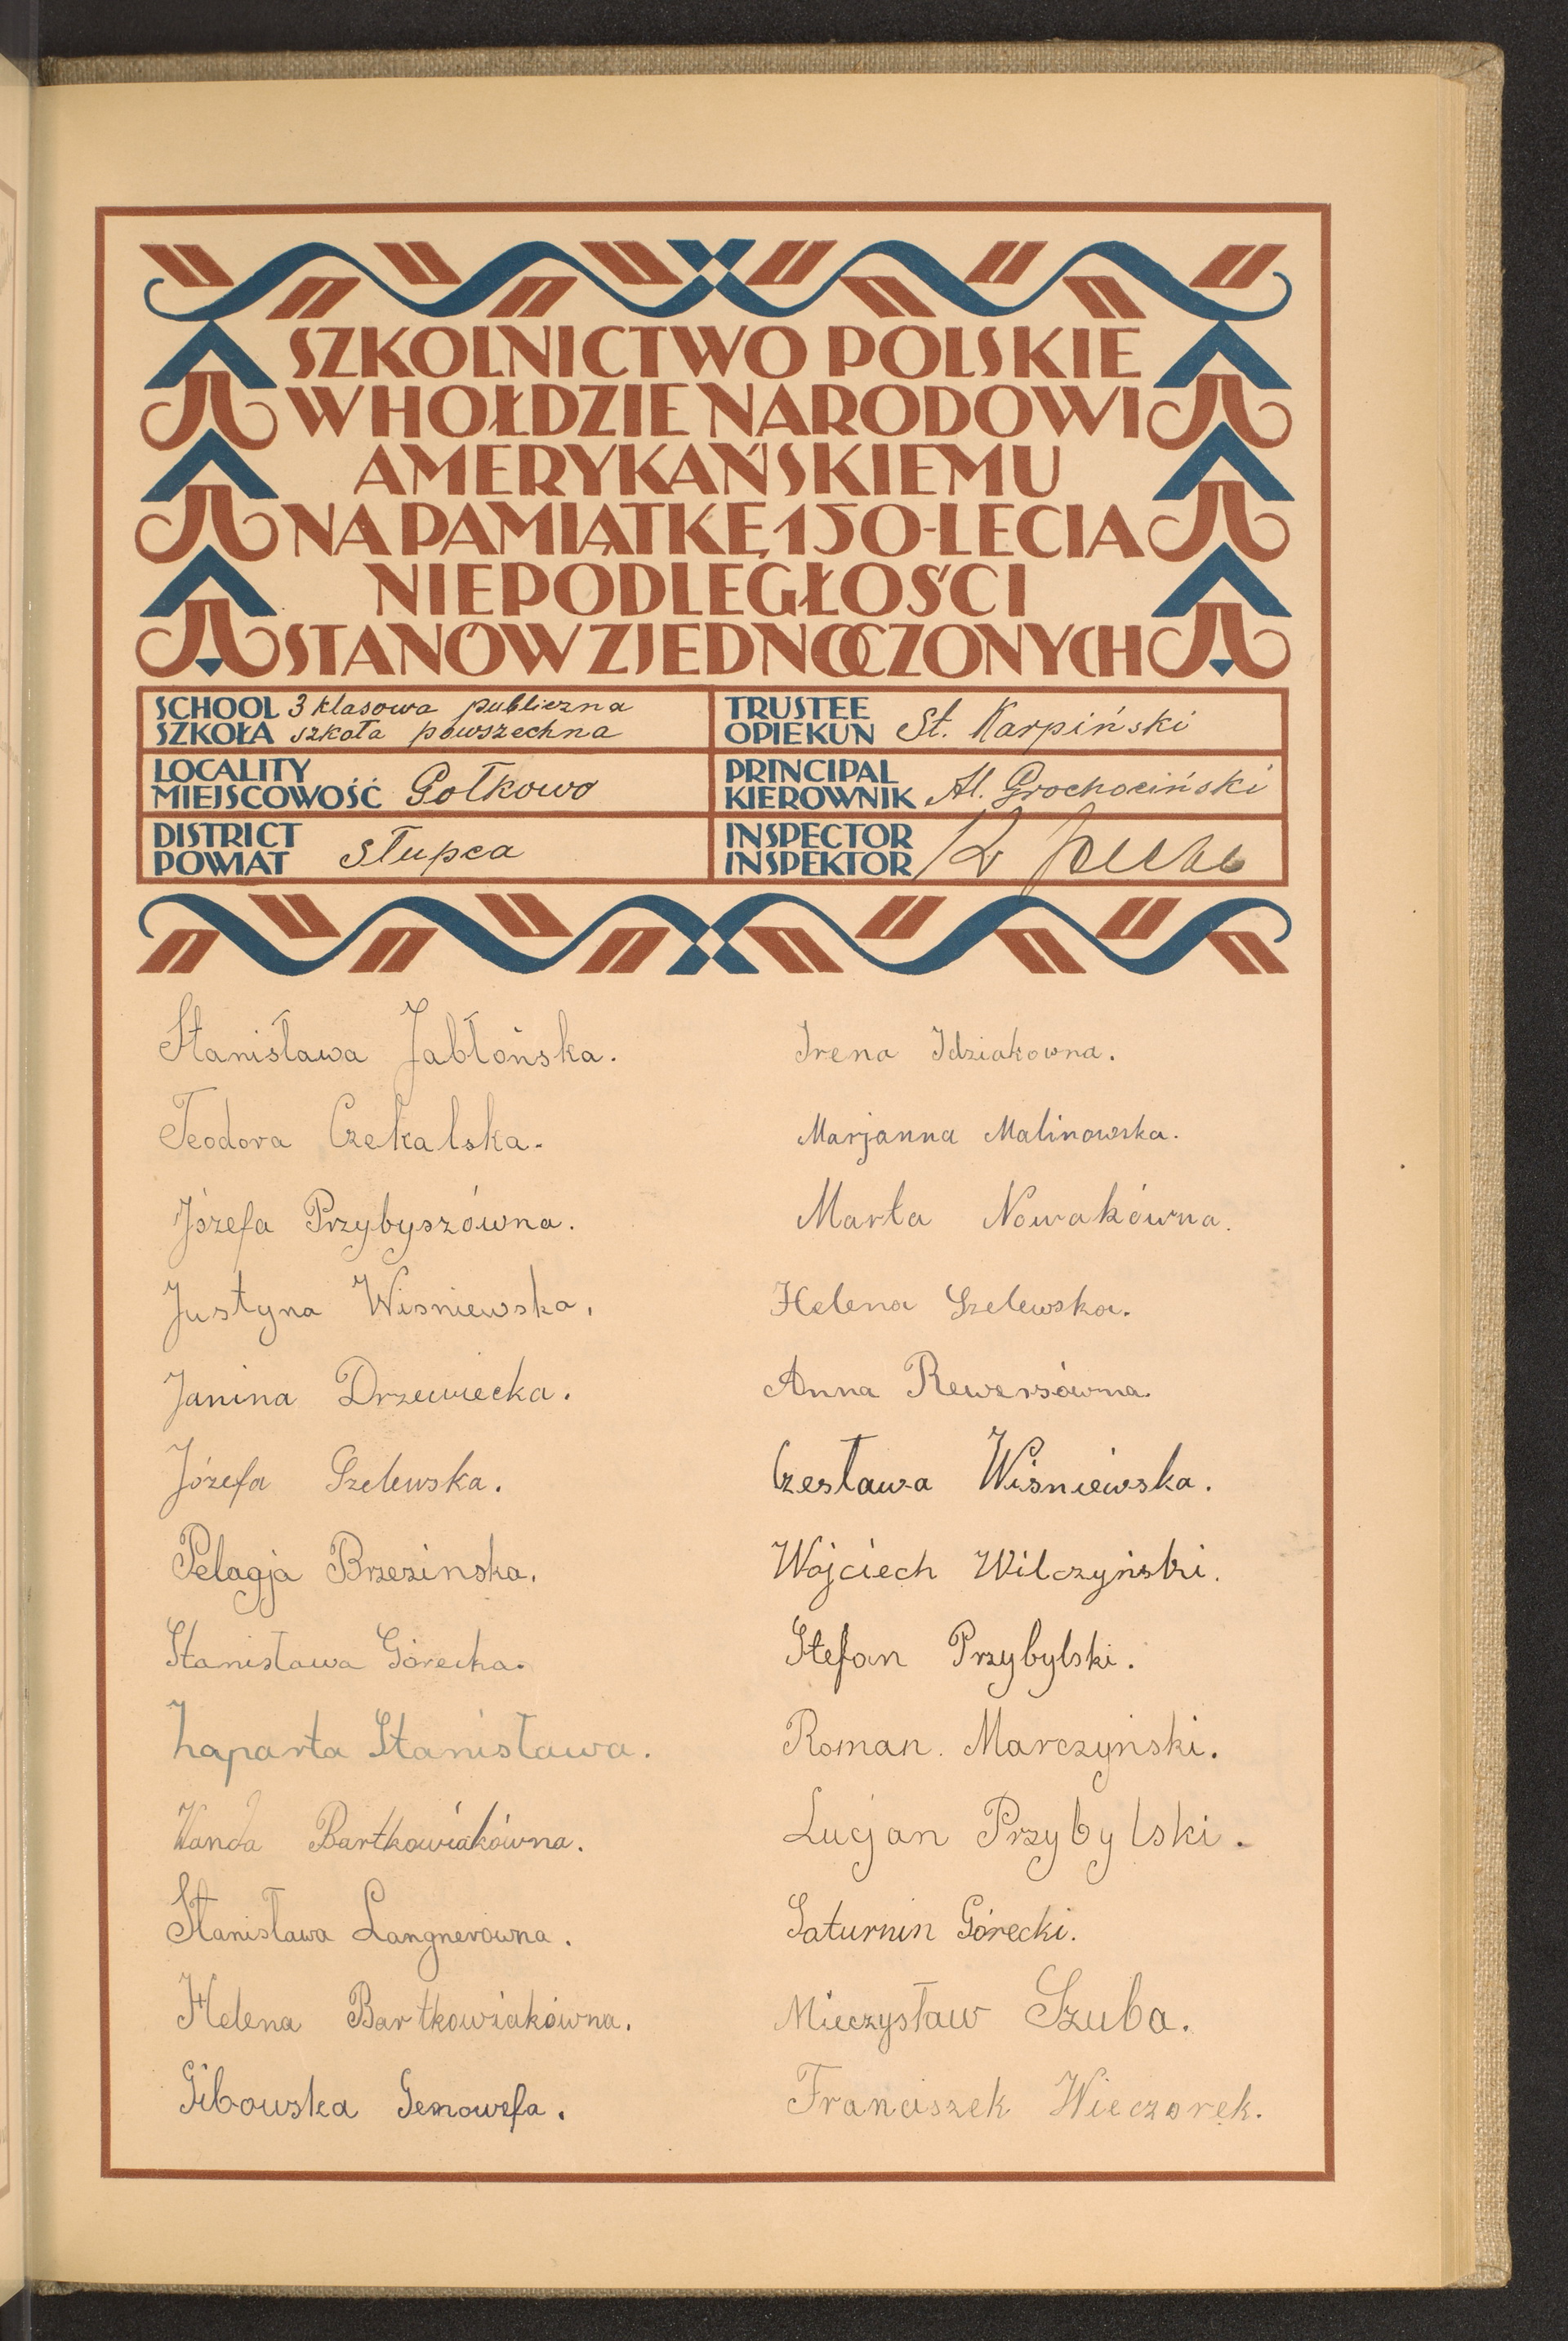 SZKOLNICTWO POLSKIE
W HOŁDZIE NARODOWI
AMERYKAŃSKIEMU
NA PAMIĄTKĘ 150-LECIA
NIEPODLEGŁOŚCI
STANÓW ZJEDNOCZONYCH
SCHOOL 3 klasowa publiczna
SZKOŁA szkoła powszechna
TRUSTEE
OPIEKUN St. Karpiński
LOCALITY
MIEJSCOWOŚĆ Gołkowo
PRINCIPAL
KIEROWNIK Al. Grochociński
DISTRICT
POWIAT Słupca
INSPECTOR
INSPEKTOR
Stanisława Jabłońska.
Teodora Czekalska.
Józefa Przybyszówna.
Justyna Wisniewska.
Janina Drzewiecka.
Józefa Szelewska.
Pelagja Brzezinska.
Stanisława Górecka.
Łaparta Stanisława.
Wanda Bartkowiakówna.
Stanisława Langnerowna.
Helena Bartkowiakówna.
Gibowska Genowefa.
Irena Idziakowna.
Marjanna Malinowska.
Marta Nowakówna.
Helena Szelewska.
Anna Rewersówna.
Czesława Wiśniewska.
Wojciech Wilczyński.
Stefan Przybylski.
Roman. Marczyński.
Lucjan Przybylski.
Saturnin Górecki.
Mieczysław Szuba.
Franciszek Wieczorek.